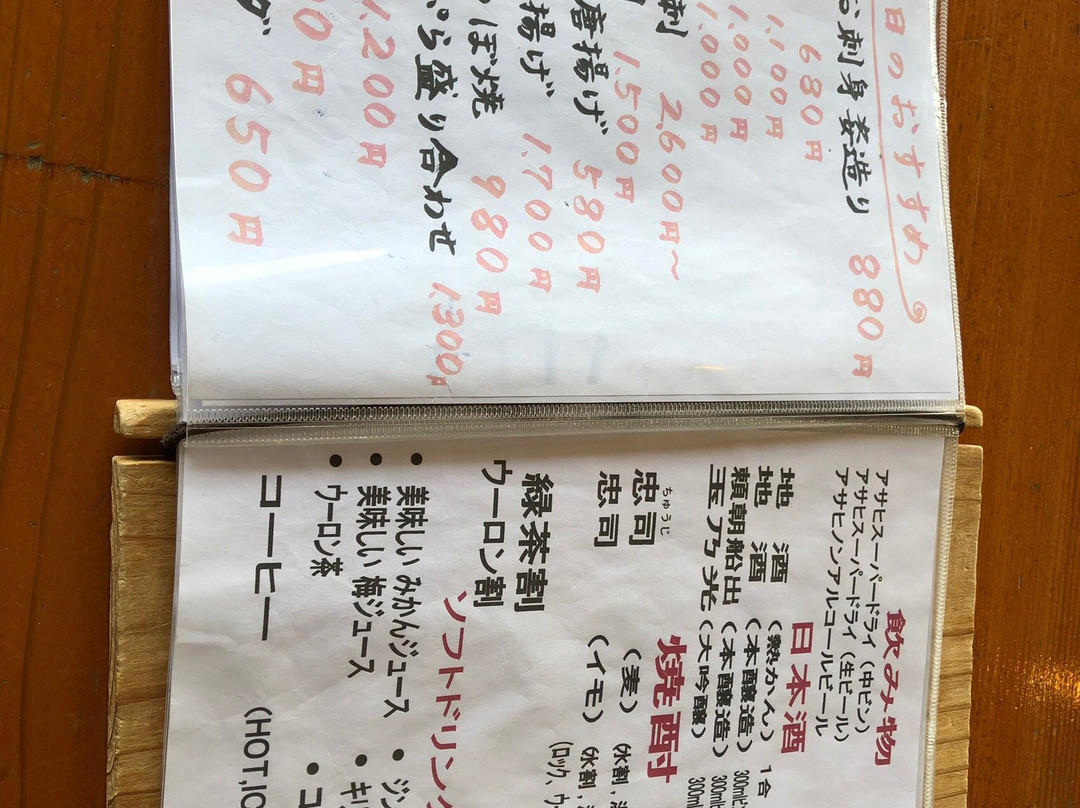 日のおすすめ
お刺身姿造り 880円
680円
1,100円
1,000円
1,000円
刺 2,600円～
1,500円
唐揚げ 580円
揚げ 1,700円
つぼ焼 980円
ら盛り合わせ 1,300円
1,200円
00円
ダ 650円
飲み物
アサヒスーパードライ（中ビン）
アサヒスーパードライ（生ビール）
アサヒノンアルコールビール
日本酒
地 酒 （熱かん） 1合
地 酒 （本醸造） 300ml
頼朝船出 （本醸造） 300ml
玉乃光 （大吟醸） 300ml
焼酎
ちゅうじ
忠司 （麦） （水割、
忠司 （イモ） （水割、
（ロック、ウ
緑茶割
ウーロン割
ソフトドリンク
● 美味しい みかんジュース ● ジン
● 美味しい 梅ジュース ● キリ
● ウーロン茶 ● コ
コーヒー （HOT,IC